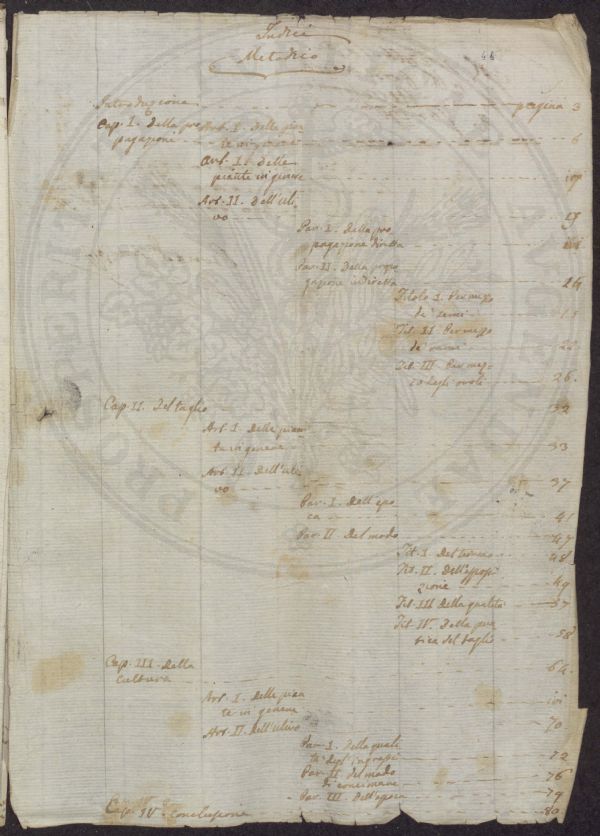 Indice
Metodico
48
Introduzione pagina 3
Cap. I. Della pro
pagazione 6
Art. I. Delle pian
te in genere
Art. I. Delle
piante in genere ivi
Art. II. Dell'uli
vo 17
Par. I. Della pro
pagazione diretta ivi
Par. II. Della propa
gazione indiretta 21
Titolo I. Per mezzo
de' semi
Tit. II Per mezzo
de' rami 22
Tit. III Per mez
zo degli ovoli 26
Cap. II. Del taglio 32
Art. I. Delle pian
te in genere 33
Art. II. Dell'uli
vo 37
Par. I. Dell'epo
ca 41
Par. II. Del modo 47
Tit. I. Del 48
Tit. II. Dell'esposi
zione 49
Tit. III Della qualità 57
Tit. IV. Della pra
tica del taglio 58
Cap. III. Della
cultura 64
Art. I. Delle pian
te in genere ivi
Art. II. Dell'ulivo 70
Par. I. Della quali
tà degl'ingrassi 72
Par. II Del modo
di concimare 76
Par. III. Dell'epoca 79
Cap. IV. Conclusione 80
PROSPERITATI AUGENDAE